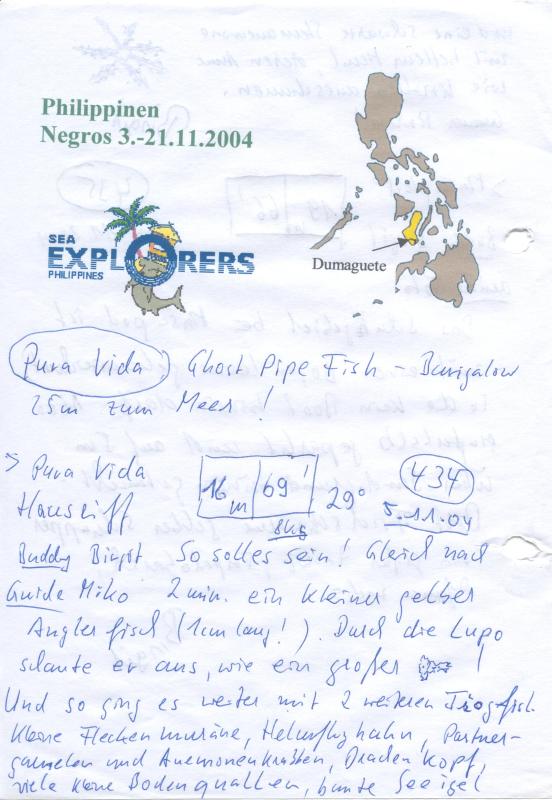 Philippinen
Negros 3.-21.11.2004
SEA
EXPLORERS
PHILIPPINES
Dumaguete
Pura Vida Ghost Pipe Fish - Bungalow
25m zum Meer!
> Pura Vida 16m 69! 29° 434
Hausriff 8kg 5.11.04
Buddy Birgit So solles sein! Gleich nach
Guide Miko 2 min. ein kleiner gelber
Anglerfisch (1cm lang!). Durch die Lupe
schaute er aus, wie ein großer !
Und so ging es weiter mit 2 weiteren Frogfisch
kleine Fleckenmuräne, Helmflughahn, Partner-
garnelen und Anemonenkrabben, Drachenkopf,
viele kleine Bodenquallen, bunte Seeigel